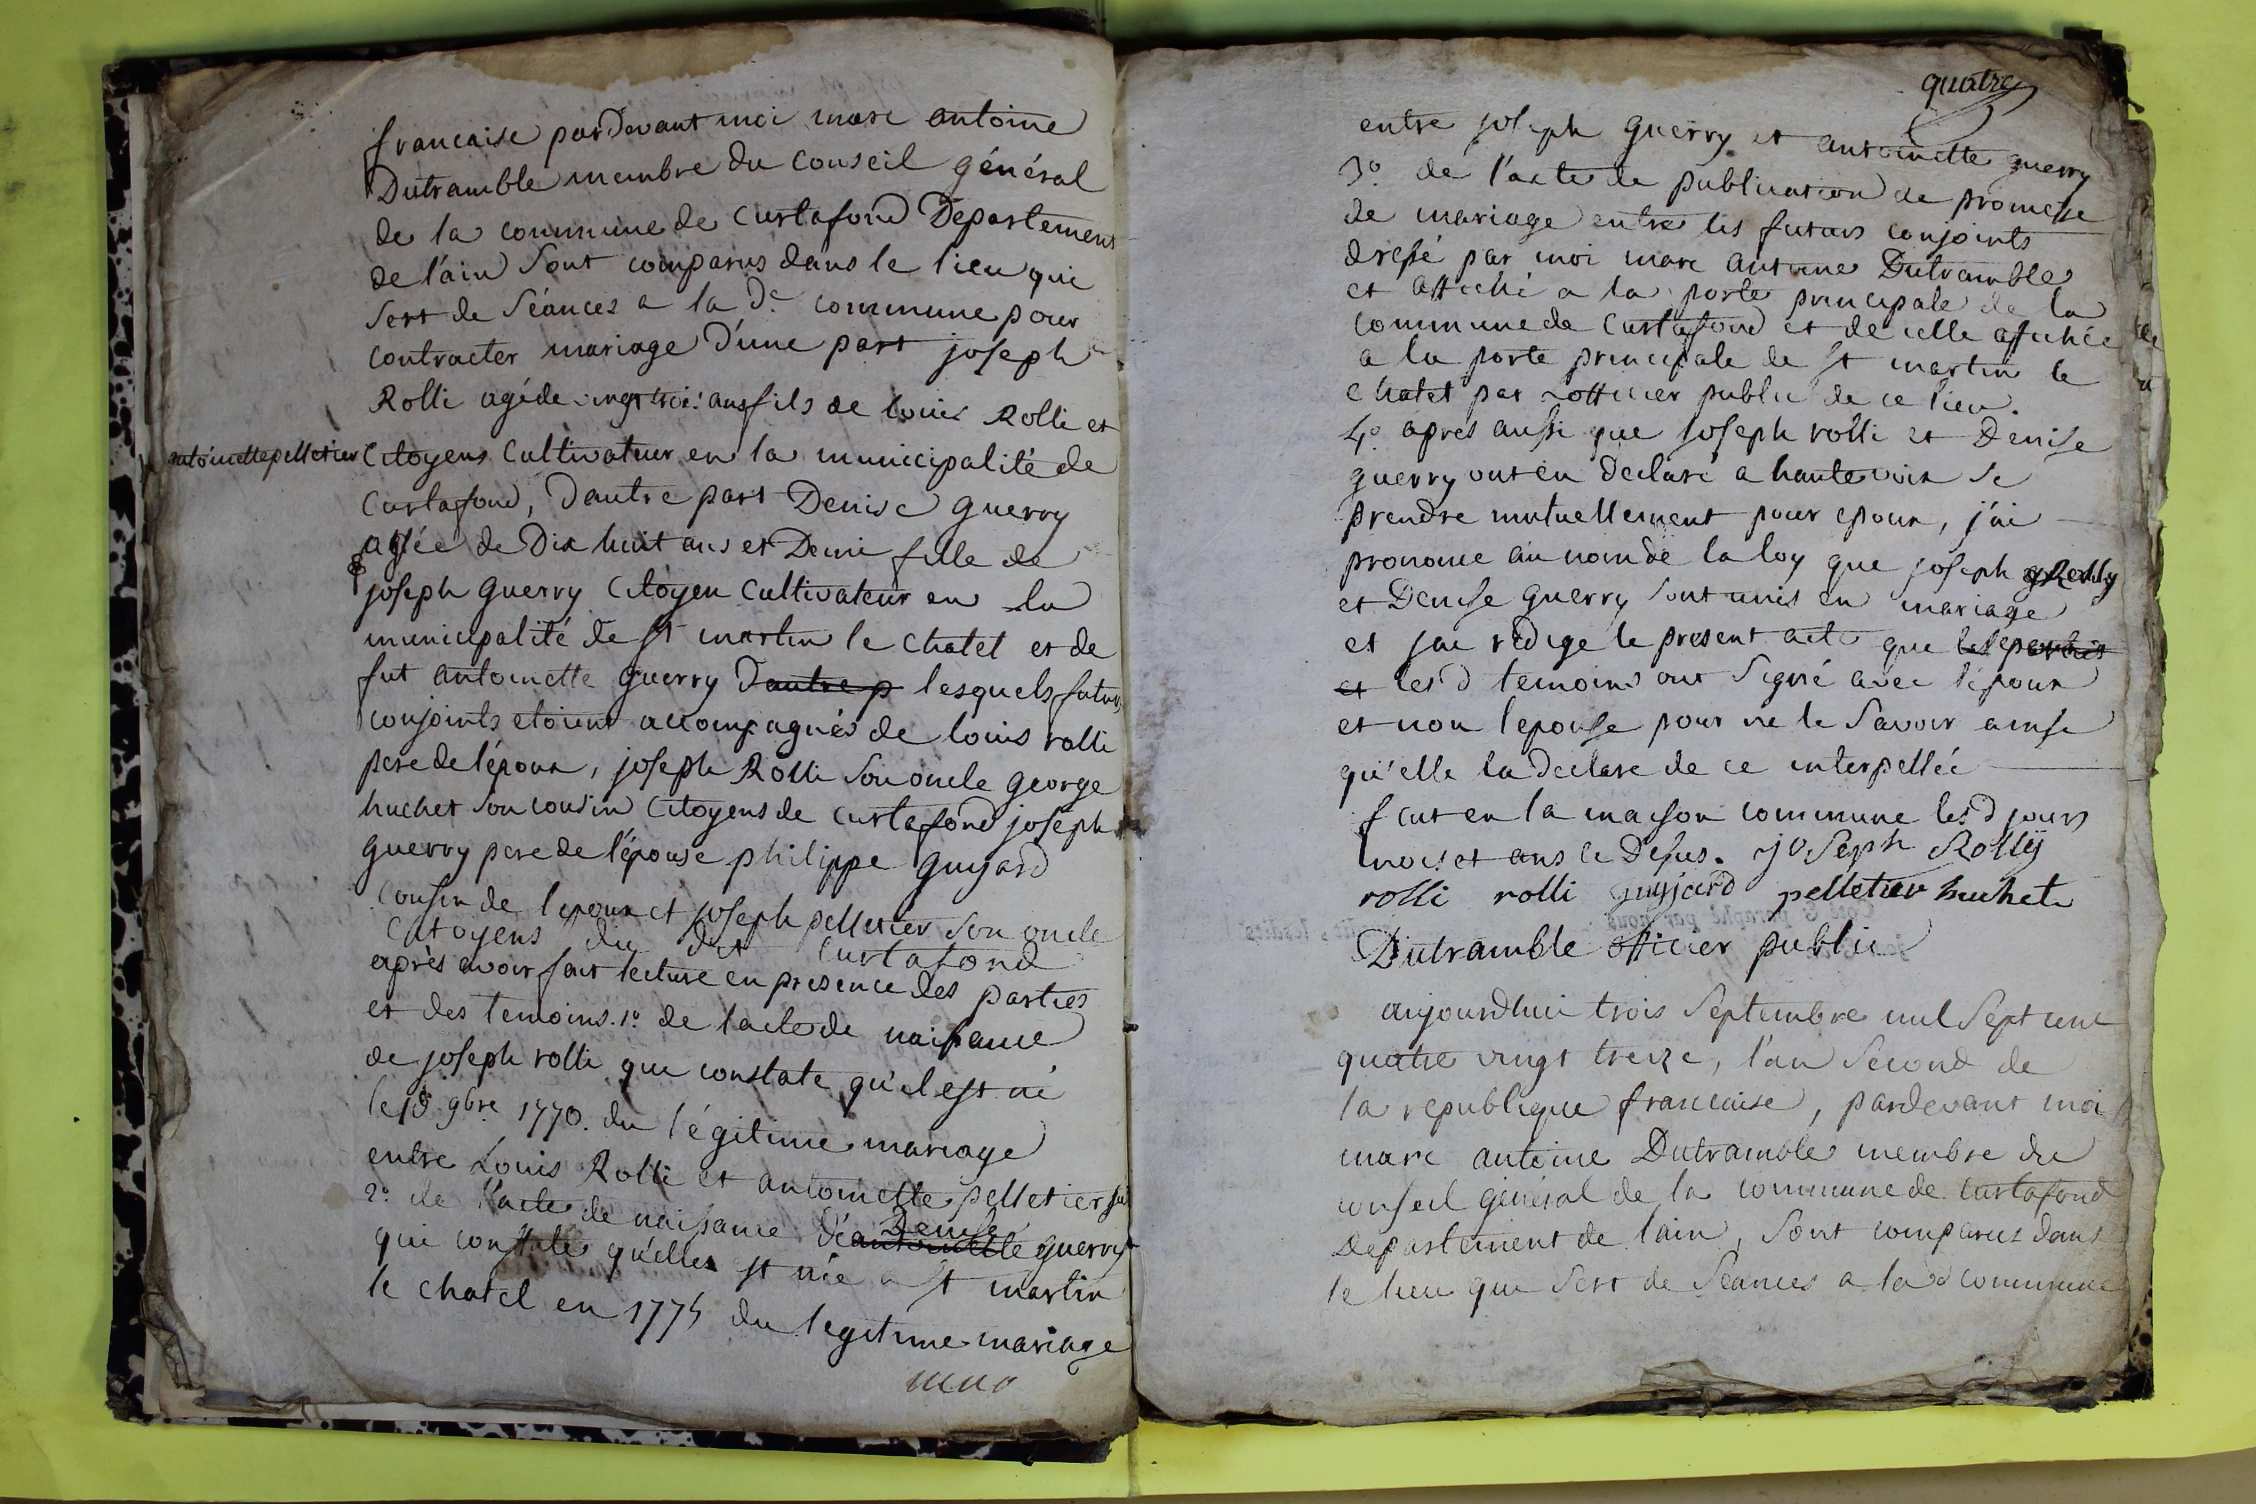 francaise pardevant moi marc antoine
Dutramble membre du Conseil général
de la commune de Curtafond Departement
de l'ain sont comparus dans le lieu qui
sert de séances a la de commune pour
contracter mariage d'une part joseph
Rolli agé de vingt trois ans fils de louis Rolli et
antoinette pelletier Citoyens Cultivateur en la municipalité de
Curtafond, d'autre part Denise guerry
agée de Dix huit ans et Demi fille de
joseph guerry Citoyen Cultivateur en la
municipalité de st martin le chatel et de
fut antoinette guerry Dautre p lesquels futurs
conjoints etoient accompagnés de louis rolli
pere de l'époux, joseph Rolli son oncle george
huchet son cousin Citoyens de Curtafond joseph
guerry pere de l'épouse philippe guyard
Cousin de l epoux et joseph pelletier son oncle
Citoyens du dit Curtafond
après avoir fait lecture en presence des parties
et des temoins. 1o. de lacte de naissance
de joseph rolli que constate qu'il est né
le 18 9bre 1770. du légitime mariage
entre Louis Rolli et antoinette pelletier
2o. de l'acte de naissance de antoinette Denise guerry
qui constate qu'elle est née a st martin
le chatel en 1774 du legitime mariage
quatre
entre joseph guerry et antoinette guerry
3o. de l'acte de publication de promesse
de mariage entre les futurs conjoints
dressé par moi marc antoine Dutramble
et affiché a la porte principale de la
commune de Curtafond et de celle affichée
a la porte principale de st martin le
chatel par Lofficier public de ce lieu.
4o. apres aussi que joseph rolli et Denise
guerry ont eu declaré a haute voix se
prendre mutuellement pour epoux, j'ai
prononce au nom de la loy que joseph Rolly
et Denise guerry sont unis en mariage
et j'ai redige le present acte que les parties
et les d temoins ont signé avec l'époux
et non l'epouse pour ne le savoir ainsi
qu'elle la declare de ce interpellée
fait en la maison commune les d jours
mois et ans ce desus. joseph Rolly
rolli rolli guyard pelletier huchet
Dutramble officier public
aujourdhui trois Septembre mil Sept cent
quatre vingt treize, l'an Second de
la republique francaise, pardevant moi
marc antoine Dutramble membre du
conseil général de la commune de Curtafond
Departement de lain, sont comparus dans
le lieu que sert de Séances a la d commune